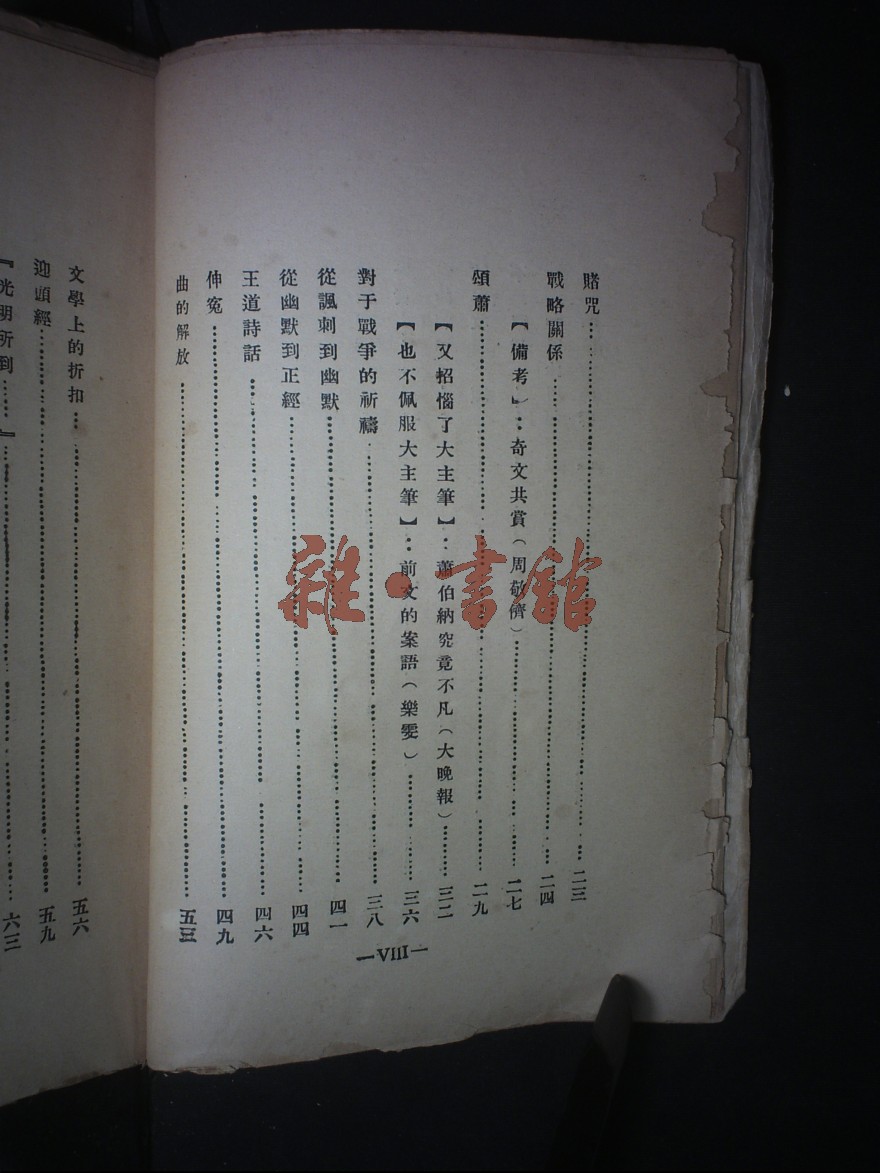 賭咒……二三
戰略關係……二四
【備考】：奇文共賞（周敬儕）……二七
頌蕭……二九
【又招惱了大主筆】：蕭伯納究竟不凡（大晚報）……三二
【也不佩服大主筆】：前文的案語（樂雯）……三六
對于戰爭的祈禱……三八
從諷刺到幽默……四一
從幽默到正經……四四
王道詩話……四六
伸冤……四九
曲的解放……五三
—VIII—
文學上的折扣……五六
迎頭經……五九
『光明所到……』……六三
雜·書館